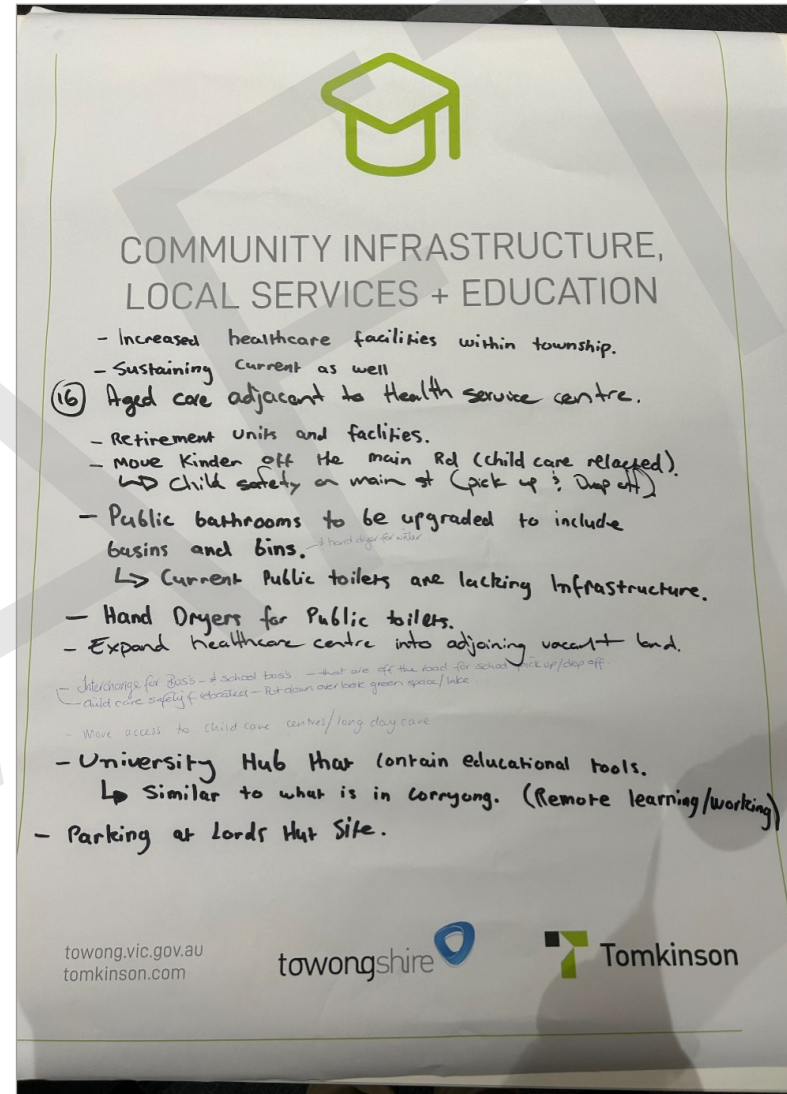 COMMUNITY INFRASTRUCTURE,
LOCAL SERVICES + EDUCATION
- Increased healthcare facilities within township.
- Sustaining current as well
(16) Aged care adjacent to Health service centre.
- Retirement units and faclities.
- Move Kinder off the main Rd (child care relacted).
↳ Child safety on main st (pick up & Drop off)
- Public bathrooms to be upgraded to include
basins and bins. - & hand dryer for water
↳ Current Public toilets are lacking Infrastructure.
- Hand Dryers for Public toilets.
- Expand healthcare centre into adjoining vacant land.
- Interchange for Bus's - & school bus's - that are off the road for school pick up/drop off.
- Child care safety - Put down over look green space/lake.
- Move access to child care centres/long day care
- University Hub that contain educational tools.
↳ Similar to what is in corryong. (Remote learning/working)
- Parking at Lords Hut Site.
towong.vic.gov.au
tomkinson.com
towongshire
Tomkinson